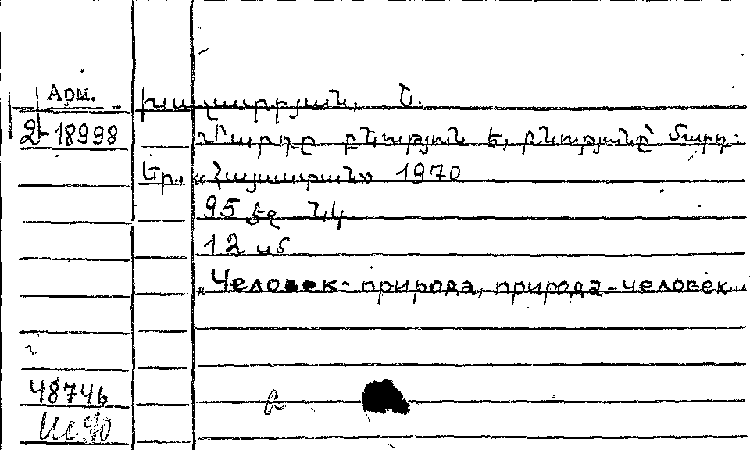 Арм.
2-18998
Խաչատրյան, Ն.
Մարդը բնության և, բնությունը՝ մարդ.
Եր., «Հայաստան» 1970
95 էջ նկ
12 սմ
„Человек-природа, природа-человек
4874b